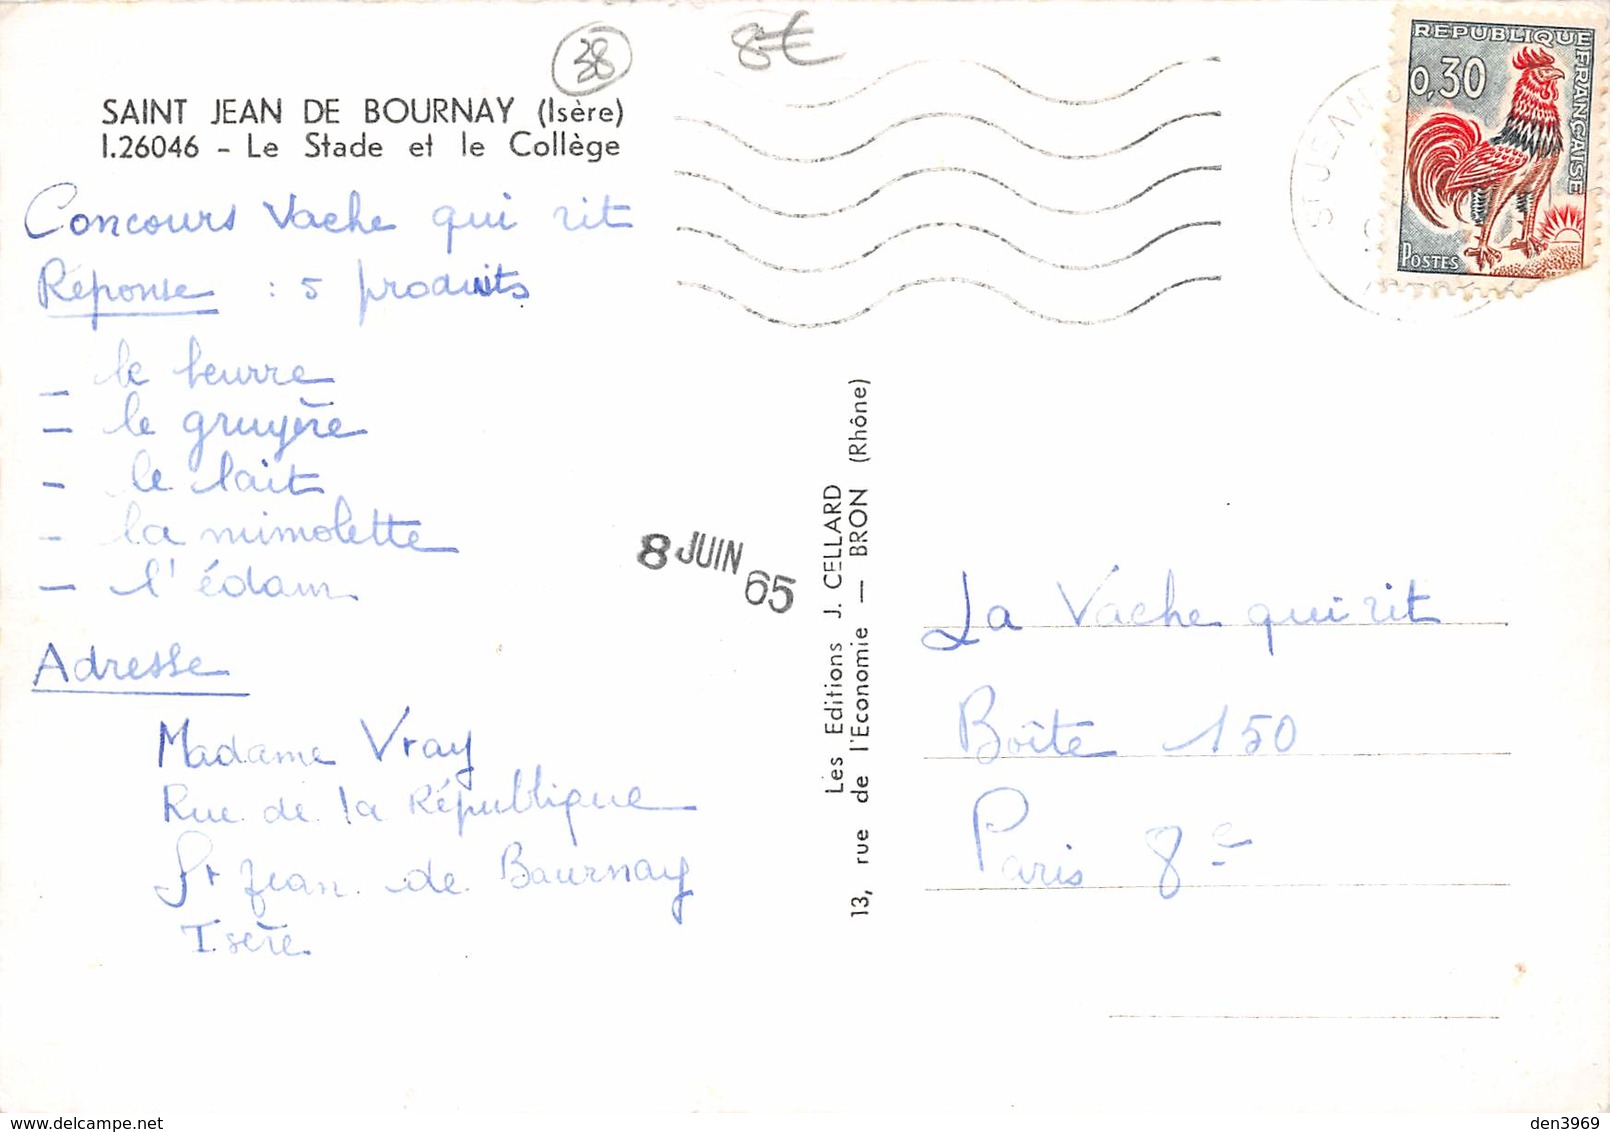 38
8€
SAINT JEAN DE BOURNAY (Isère)
I.26046 - Le Stade et le Collège
Concours Vache qui rit
Réponse : 5 produits
_ le beurre
- le gruyère
- le lait
- la mimolette
- l'édam
Adresse
Madame Vray
Rue de la République
St Jean de Bournay
Isère
8 JUIN 65
Les Editions J. CELLARD
13, rue de l'Economie — BRON (Rhône)
REPUBLIQUE FRANÇAISE
0,30
POSTES
ST JEAN
La Vache qui rit
Boîte 150
Paris 8e
den3969